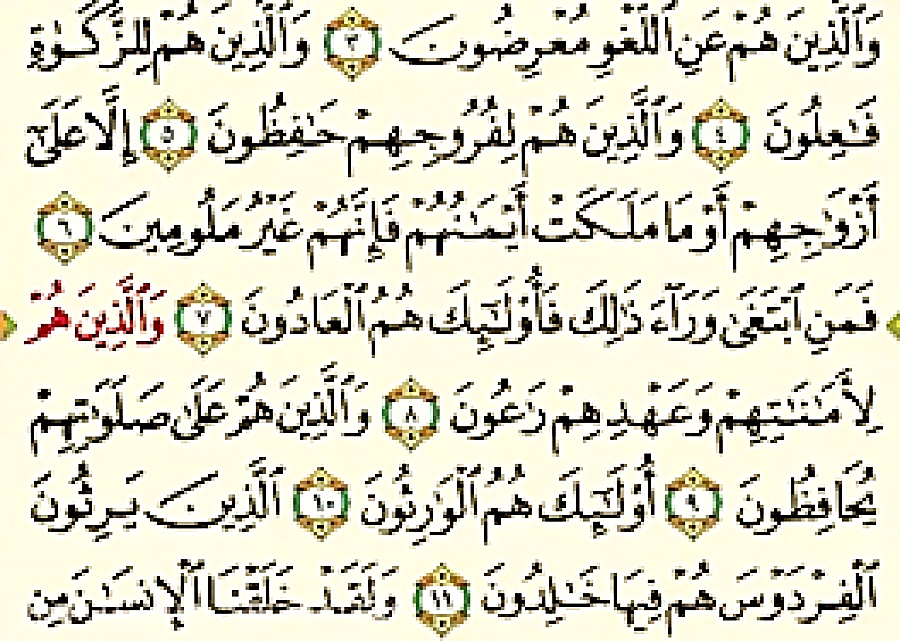 وَٱلَّذِينَ هُمْ عَنِ ٱللَّغْوِ مُعْرِضُونَ ٣ وَٱلَّذِينَ هُمْ لِلزَّكَوٰةِ
فَـٰعِلُونَ ٤ وَٱلَّذِينَ هُمْ لِفُرُوجِهِمْ حَـٰفِظُونَ ٥ إِلَّا عَلَىٰٓ
أَزْوَٰجِهِمْ أَوْ مَا مَلَكَتْ أَيْمَـٰنُهُمْ فَإِنَّهُمْ غَيْرُ مَلُومِينَ ٦
فَمَنِ ٱبْتَغَىٰ وَرَآءَ ذَٰلِكَ فَأُو۟لَـٰٓئِكَ هُمُ ٱلْعَادُونَ ٧ وَٱلَّذِينَ هُمْ
لِأَمَـٰنَـٰتِهِمْ وَعَهْدِهِمْ رَٰعُونَ ٨ وَٱلَّذِينَ هُمْ عَلَىٰ صَلَوَٰتِهِمْ
يُحَافِظُونَ ٩ أُو۟لَـٰٓئِكَ هُمُ ٱلْوَٰرِثُونَ ١٠ ٱلَّذِينَ يَرِثُونَ
ٱلْفِرْدَوْسَ هُمْ فِيهَا خَـٰلِدُونَ ١١ وَلَقَدْ خَلَقْنَا ٱلْإِنسَـٰنَ مِن